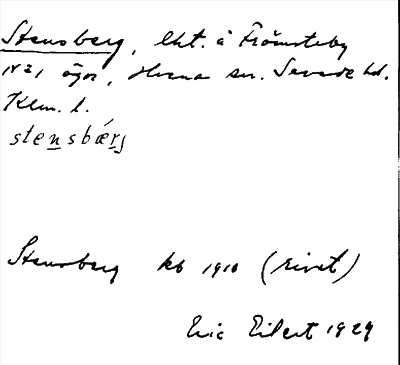 Stensberg, lht. å Frömsteby
Nr 1 ägor, Hvena sn. Sevede hd.
Klm. l.
stensbǽrj
Stensberg kb 1910 (rivet)
Eric Eilert 1929